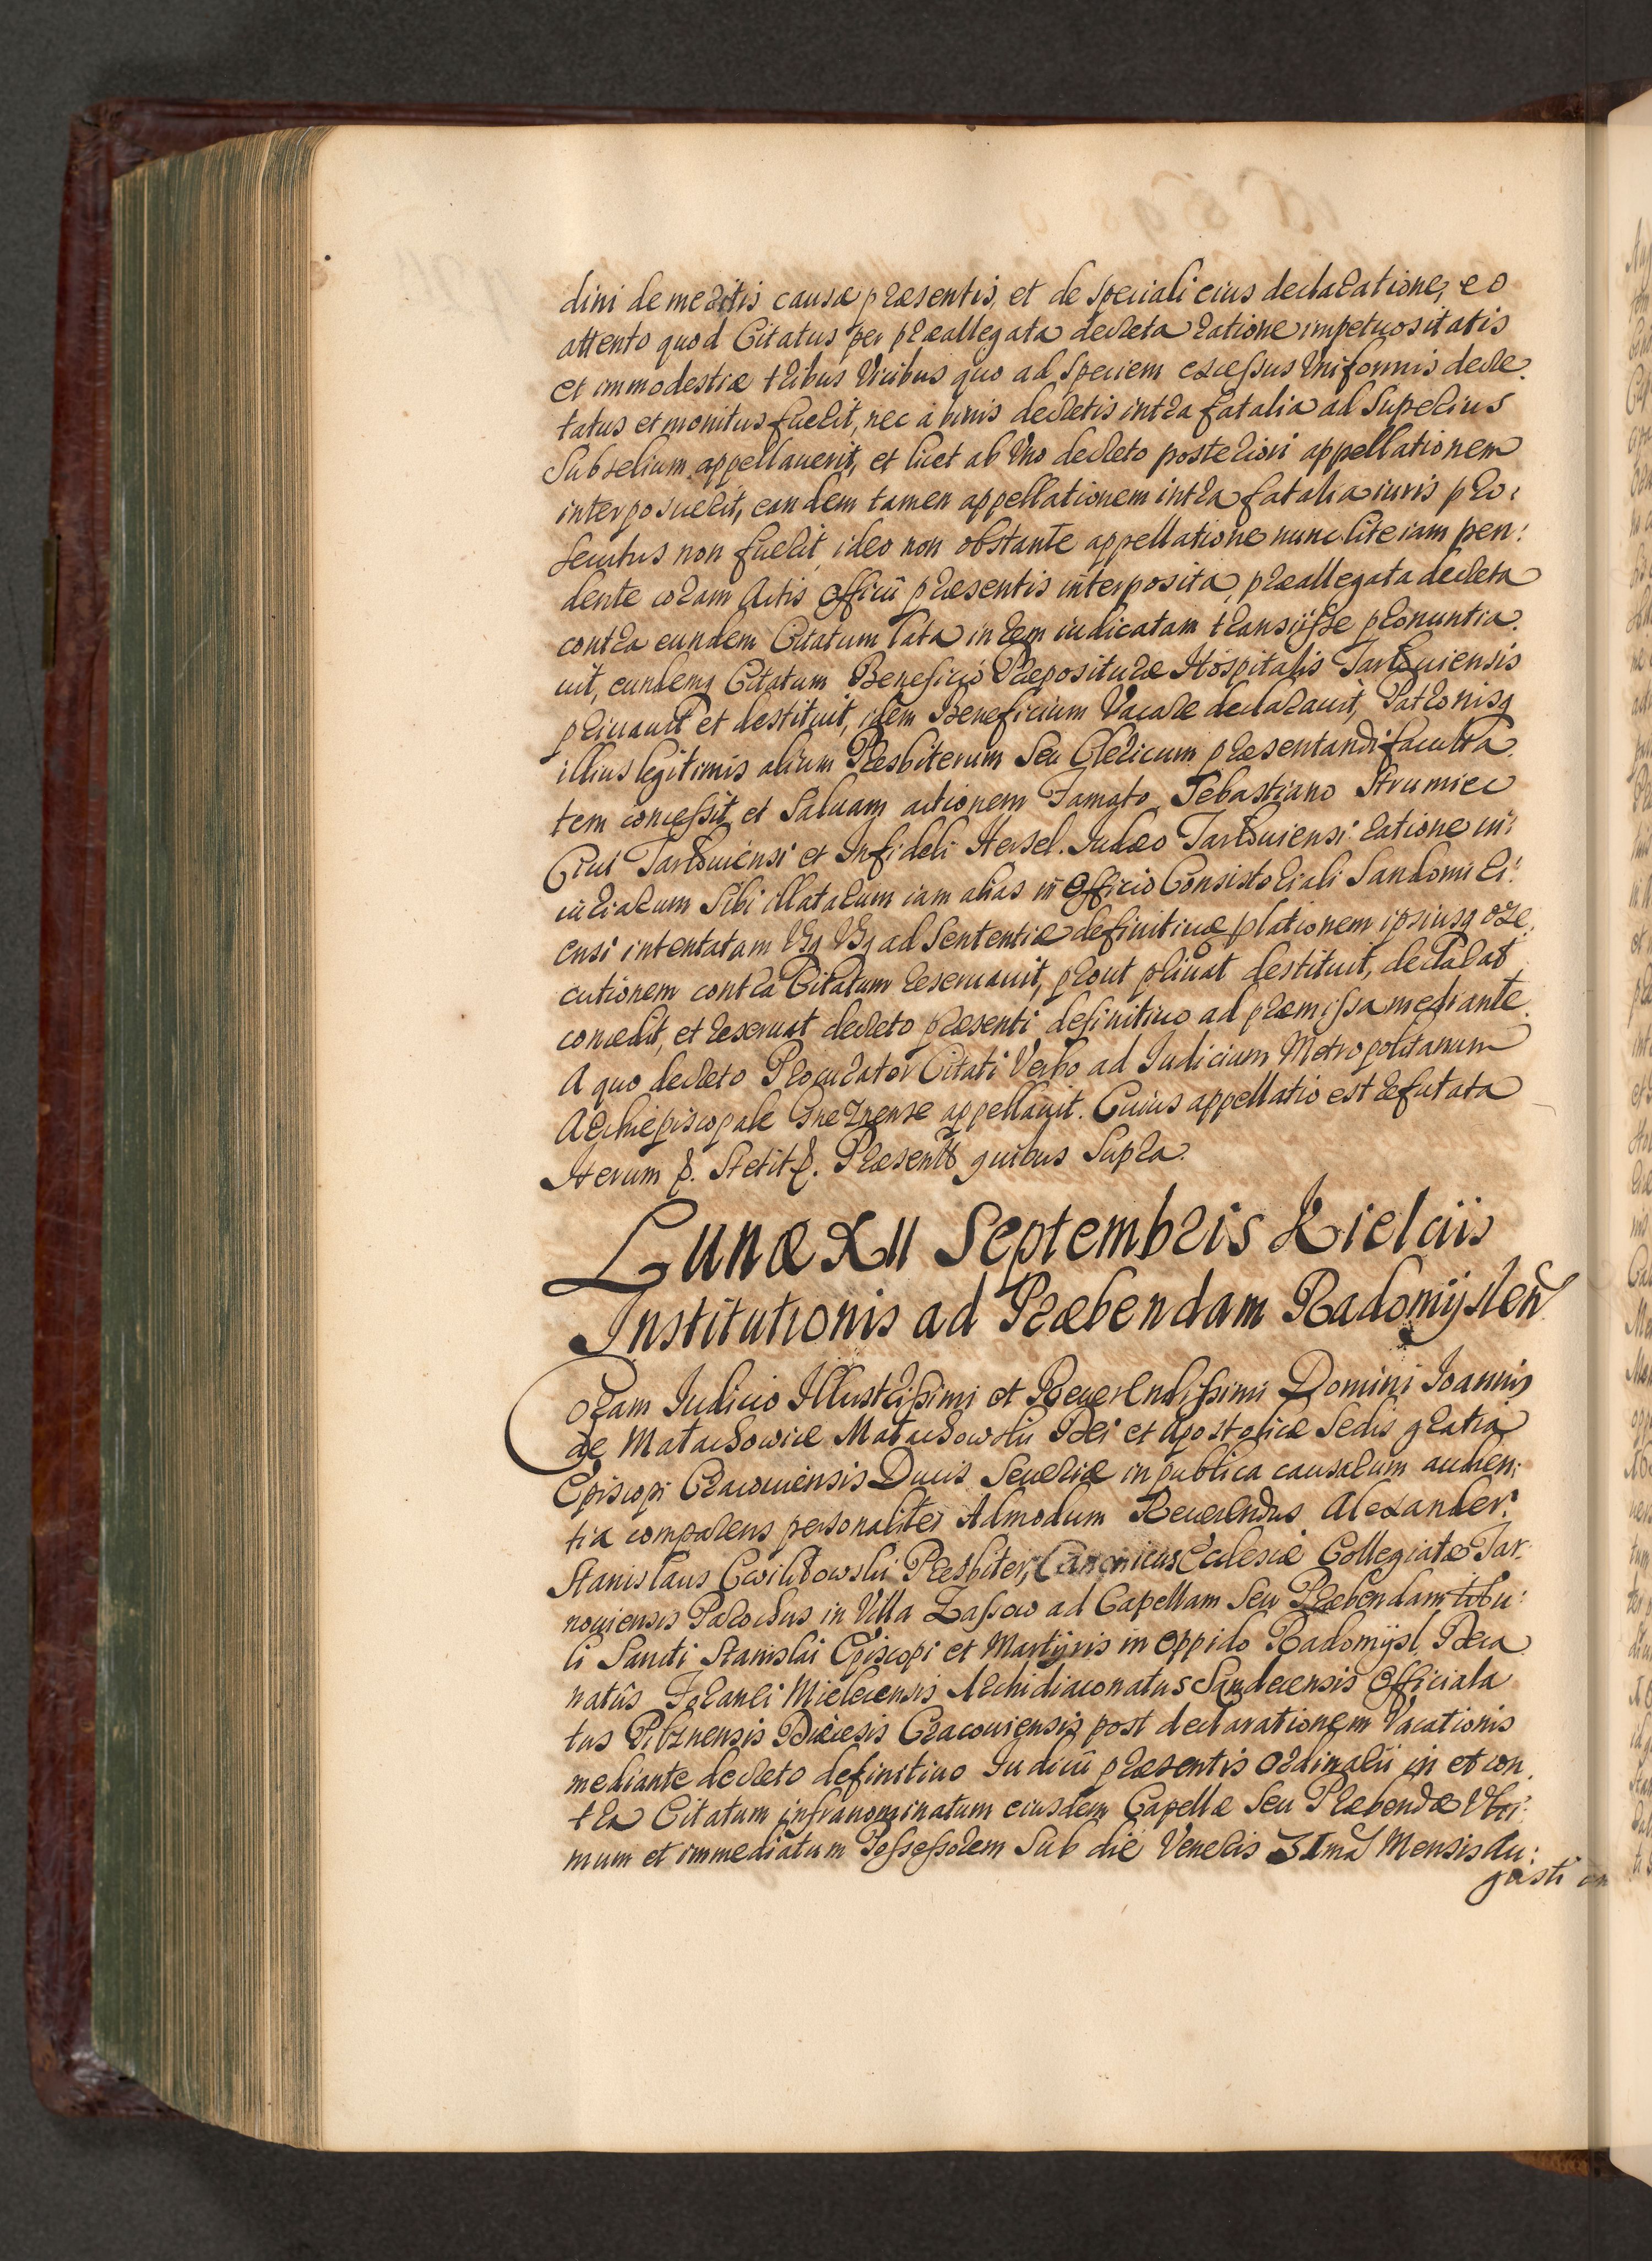 dini de meritis causæ præsentis, et de speciali eius declaratione, eo
attento quod Citatus per præallegata decreta ratione impetuositatis
et immodestiæ tribus Vicibus quo ad Speciem excessus Vniformis decre:
tatus et monitus fuerit, nec a binis decretis intra fatalia ad Superius
Subselium appellauerit, et licet ab Vno decreto posteriori appellationem
interposuerit, eandem tamen appellationem intra fatalia iuris pro:
secutus non fuerit, ideo non obstante appellatione nunc lite iam pen:
dente coram Actis Officii præsentis interposita, præallegata decreta
contra eundem Citatum lata in rem iudicatam transiisse pronuntia:
uit, eundemq Citatum Beneficio Præpositura Hospitalis Tarloviensis
priuauit et destituit, idem Beneficium Vacare declarauit, Patronisq
illius legitimis alium Præsbiterum Seu Clericum præsentandi faculta:
tem concessit, et Saluam actionem Famato Sebastiano Strumiec
Ciui Tarloviensi et Infideli Hersel Judæo Tarloviensi ratione in:
iuriarum Sibi illatarum iam alias in Officio Consistoriali Sandomiri:
ensi intentatam Vsq Vsq ad Sententiæ definitiuæ plationem ipsiusq exe:
cutionem contra Citatum reseruauit, prout priuat destituit, declarat
concedit, et reseruat decreto præsenti definitiuo ad præmissa mediante.
A quo decreto Procurator Citati Verbo ad Iudicium Metropolitanum
Archiepiscopale Gneznense appellauit. Cuius appellatio est refutata
Iterum p. Stetit p. Præsentb quibus Supra.
Lunæ XII Septembris Kielciis
Institutionis ad Præbendam Radomÿslen
Coram Iudicio Illustrissimi et Reuerendissimi Domini Ioannis
de Małachowice Małachowski Dei et Apostolicæ Sedis gratia
Episcopi Cracouiensis Ducis Seueriæ in publica causarum audien:
tia comparens personaliter Admodum Reuerendus Alexander
Stanislaus Cwilikowski Præsbiter, Canonicus Ecclesiæ Collegiatæ Tar:
nouiensis Parochus in Villa Zassow ad Capellam Seu Præbendam titu:
li Sancti Stanislai Episcopi et Martÿris in Oppido Radomÿsl Deca
natûs Foranei Mielecensis Archidiaconatus Sandecensis Officiala
tus Pilznensis Diæcesis Cracouiensis, post declarationem Vacationis
mediante decreto definitiuo Iudicii præsentis Ordinarii in et con
tra Citatum infranominatum eiusdem Capellæ Seu Præbendæ Vlti:
mum et immediatum Possessorem Sub die Veneris 31ma Mensis Au:
gusti